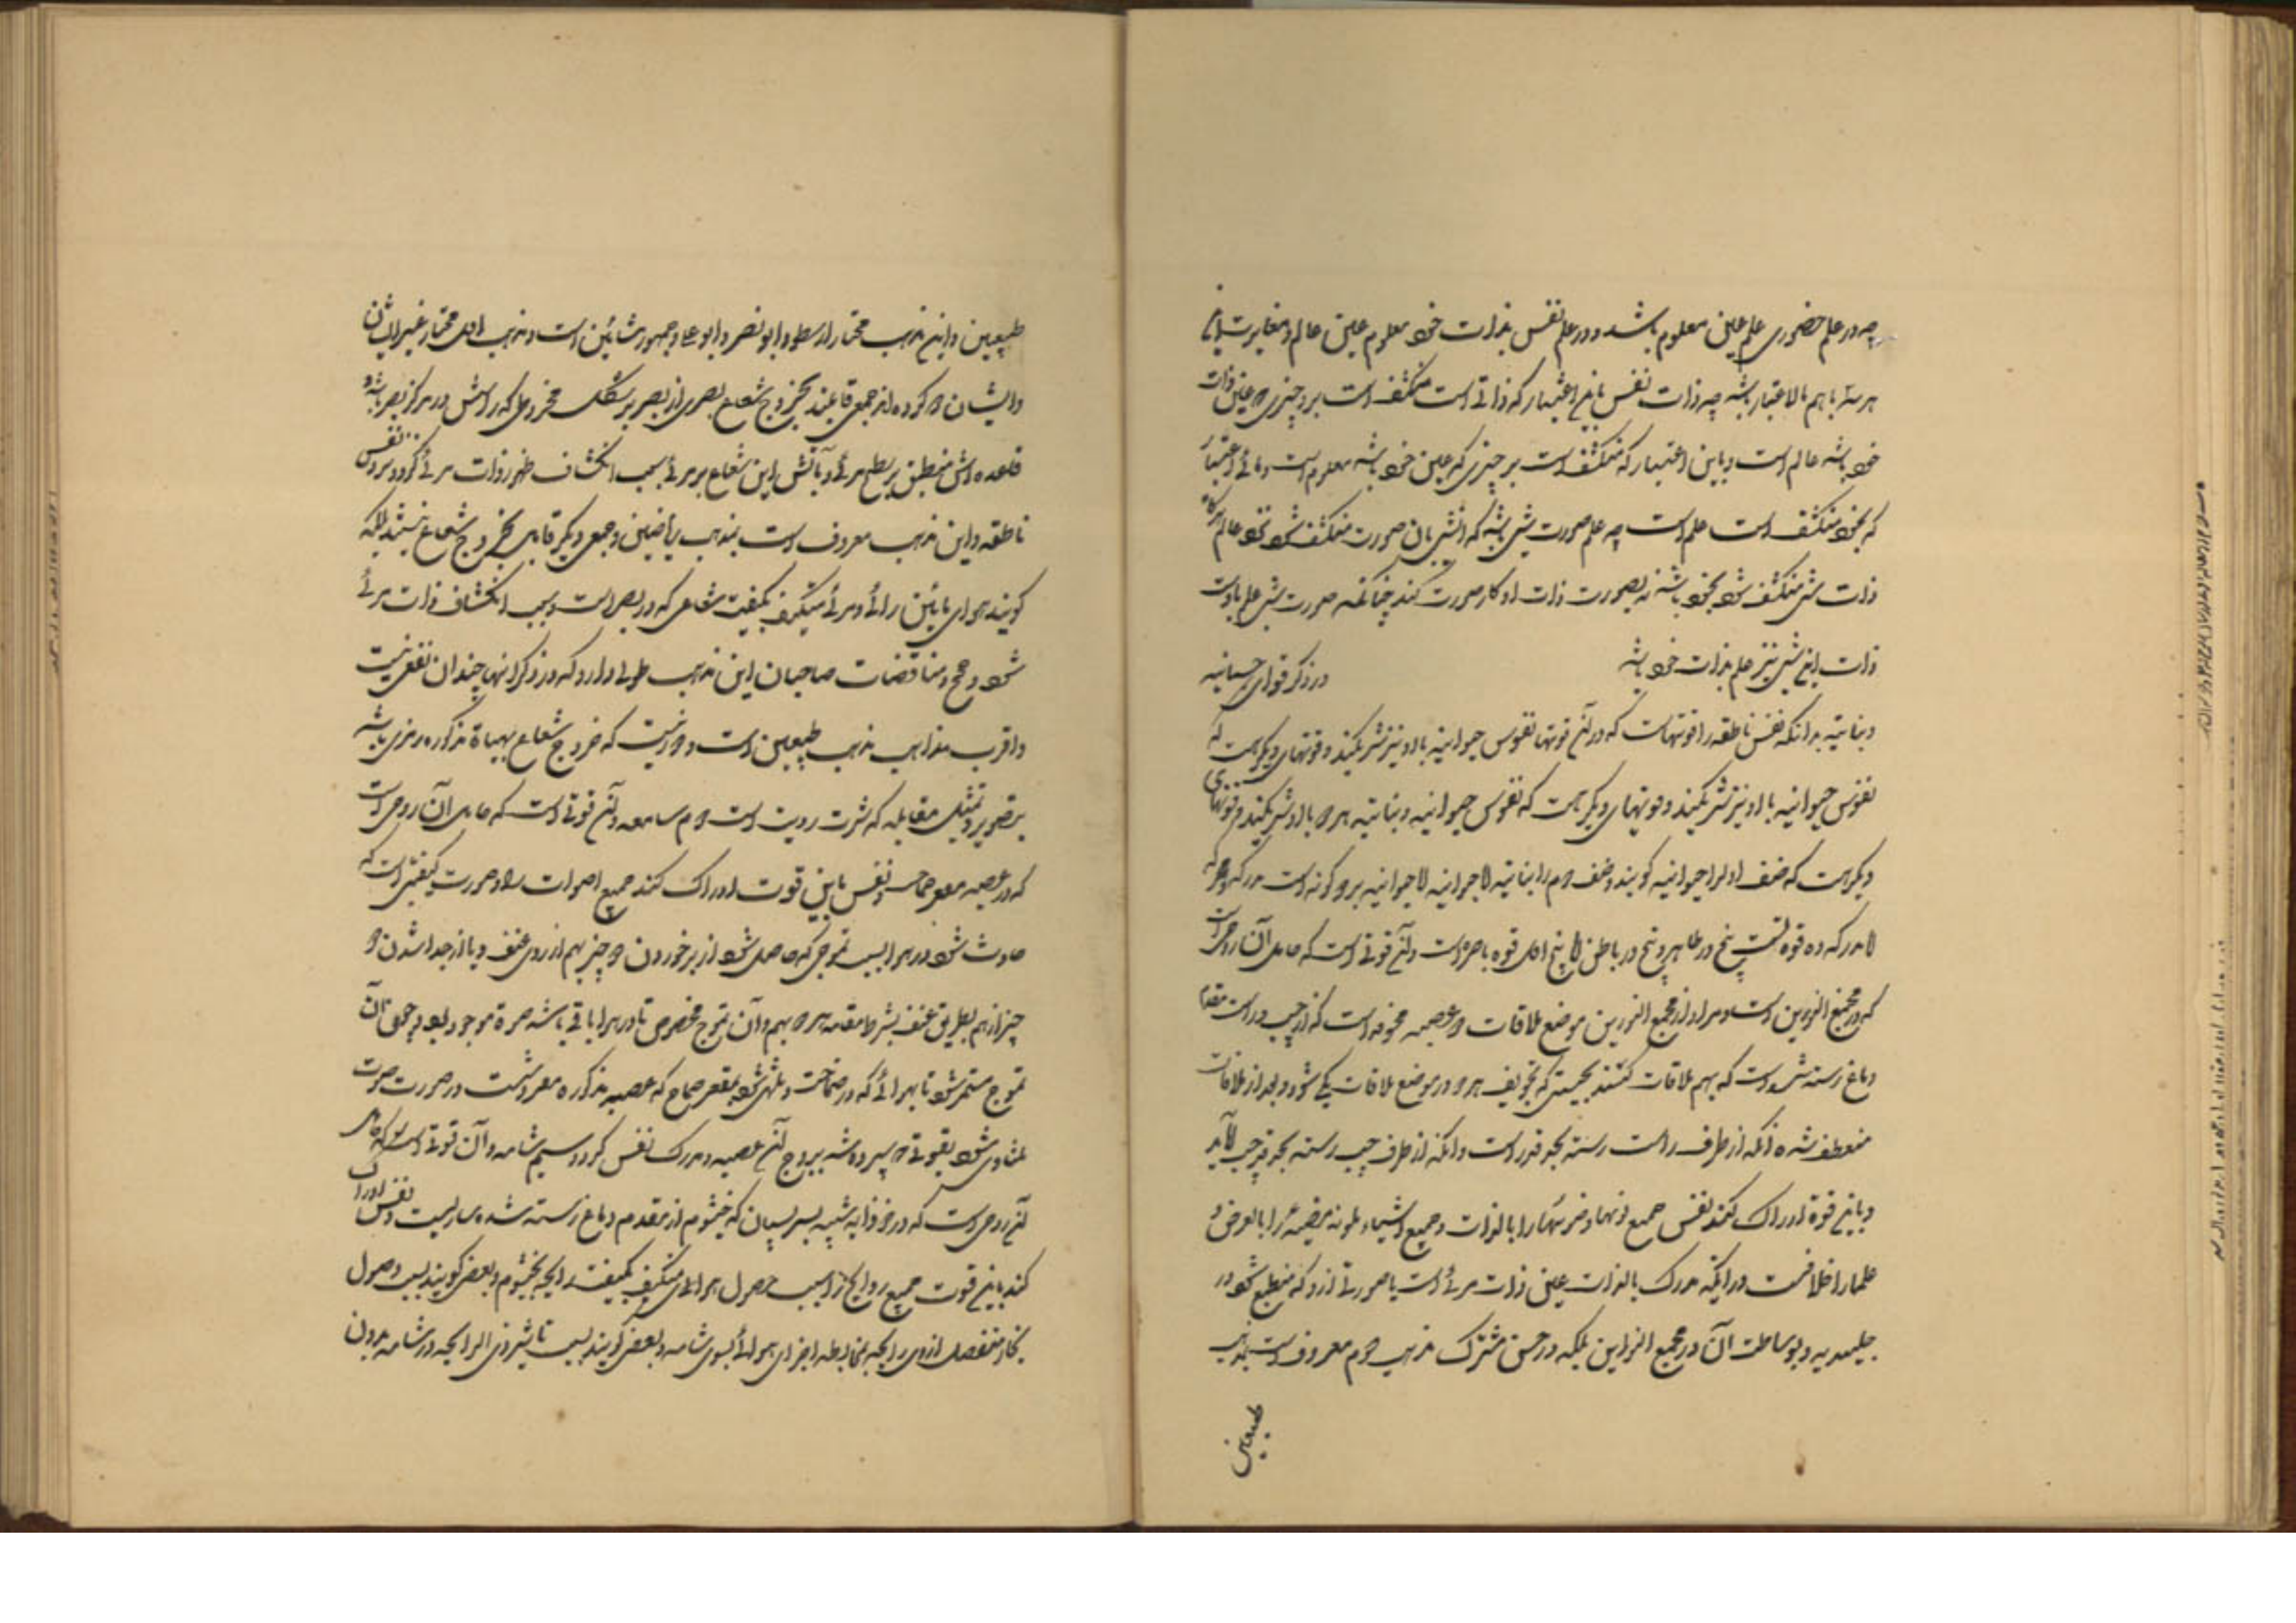 چه در علم حضوری علم عین معلوم باشد و در علم نفس بذات خود معلوم عین عالم و مغایرت این
هر سه با هم بالاعتبار باشد چه ذات نفس باین اعتبار که ذاتی است منکشف است بر و چیزی که عین ذات
خود باشد عالم است و باین اعتبار که منکشف است بر چیزی که عین خود باشد معلوم است و باین اعتبار
که بخود منکشف است علم است چه علم صورت شی باشد که آن شی بان صورت منکشف شود نزد عالم هرگاه
ذات شی منکشف شود بخود باشد نه بصورت ذات او کار صورت کند چنانکه صورت شی علم باوست
ذات این شی نیز علم بذات خود باشد در ذکر قوای حسیانیه
و نباتیه بدانکه نفس ناطقه را قوتهاست که در آن قوتها نفوس حیوانیه با او نیز شریکند و قوتهای دیگر هست که
نفوس حیوانیه با او نیز شریکند و قوتهای دیگر هست که نفوس حیوانیه و نباتیه هر دو با او شریکند و قوتهای
دیگر هست که صنف اول را حیوانیه گویند و صنف دوم را نباتیه اما حیوانیه بر دو گونه است مدرکه و محرکه
اما مدرکه ده قوه است پنج در ظاهر و پنج در باطن اما پنج اول قوه باصره است و آن قوتی است که حامل آن روحی است
که در مجمع النورین است و مراد از مجمع النورین موضع ملاقات دو عصبه مجوفه است که از چپ و راست مقدم
دماغ رسته شده است که بهم ملاقات کنند بحیثیتی که تجویف هر دو در موضع ملاقات یکی شود و بعد از ملاقات
منعطف شده آنکه از طرف راست رسته بحدقه راست و آنکه از طرف چپ رسته بحدقه چپ آید
و باین قوة ادراک کند نفس جمیع لونها و ضوئها را بالذات و جمیع اشیاء ملونه مضیئه را بالعرض و
علما را خلافست در اینکه مدرک بالذات عین ذات مرئی است یا صورتی از او که منطبع شود در
جلیدیه و بوساطت آن در مجمع النورین بلکه در حس مشترک مذهب دوم معروف است بمذهب
طبیعین
طبیعین و این مذهب مختار ارسطو و ابو نصر و ابو علی و جمهور مشائین است و مذهب اول مختار غیر ایشان
و ایشان دو گروه اند جمعی قائلند بخروج شعاع بصری از بصر بر شکل مخروطی که رأسش در مرکز بصر باشد و
قاعده اش منطبق بر سطح مرئی و تابش این شعاع بر مرئی سبب انکشاف ظهور ذات مرئی گردد بر نفس
ناطقه و این مذهب معروف است بمذهب ریاضیین و جمعی دیگر قایل بخروج شعاع نیستند بلکه
گویند هوای مابین رائی و مرئی متکیف بکیفیت شعاعی که در بصر است و سبب انکشاف ذات مرئی
شود و حجج و مناقضات صاحبان این مذهب طولی دارد که در ذکر آنها چندان نفعی نیست
و اقرب مذاهب مذهب طبیعین است و دور نیست که خروج شعاع بهیأة مذکوره رمزی باشد
بر تصویر و تمثیل مقابله که شرط رویت است دوم سامعه و آن قوتی است که حامل آن روحی است
که در عصبه مقعر صماخست و نفس باین قوت ادراک کند جمیع اصوات را و صورت کیفیتی است که
حادث شود در هوا بسبب تموجی که حاصل شود از بر خوردن دو چیز بهم از روی عنف و یا از جدا شدن دو
چیز از هم بطریق عنف بشرط مقاومه هر دو بهم و آن تموج مخصوص تا در هوا باقی باشد صوة موجود بود و چون آن
تموج مستمر شود تا بهوائی که در صماخست و منتهی شود بمقعر صماخ که عصبه مذکوره مفروشست در صورت صوت
متادی شود بقوتی که سپرده شده بروح آن عصبه و مدرک نفس گردد سیم شامه و آن قوتی است که حامل
آن روحی است که در دو زایده شبیه بسر پستان که خیشوم از مقدم دماغ رسته شده ساریست و نفس ادراک
کند باین قوت جمیع روایح را بسبب وصول هوای متکیف بکیفیت رایحه بخیشوم و بعضی گویند بسبب وصول
بخار منفصل از ذی رایحه بمخالطه اجزای هوائی بسوی شامه و بعضی گویند بسبب تاثیر ذی الرایحه در شامه بدون